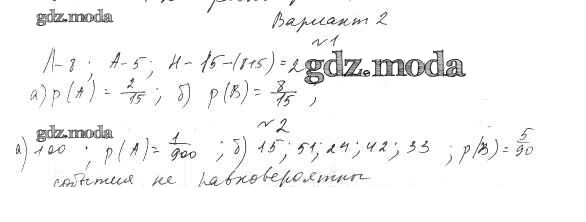 gdz.moda
Вариант 2
№1
Л-8; А-5; Н-15-(8+5)=2 gdz.moda
а) p(A)=2/15; б) p(B)=8/15;
gdz.moda
№2
а) 100; p(A)=1/900; б) 15; 51; 24; 42; 33; p(B)=5/90
события не равновероятны